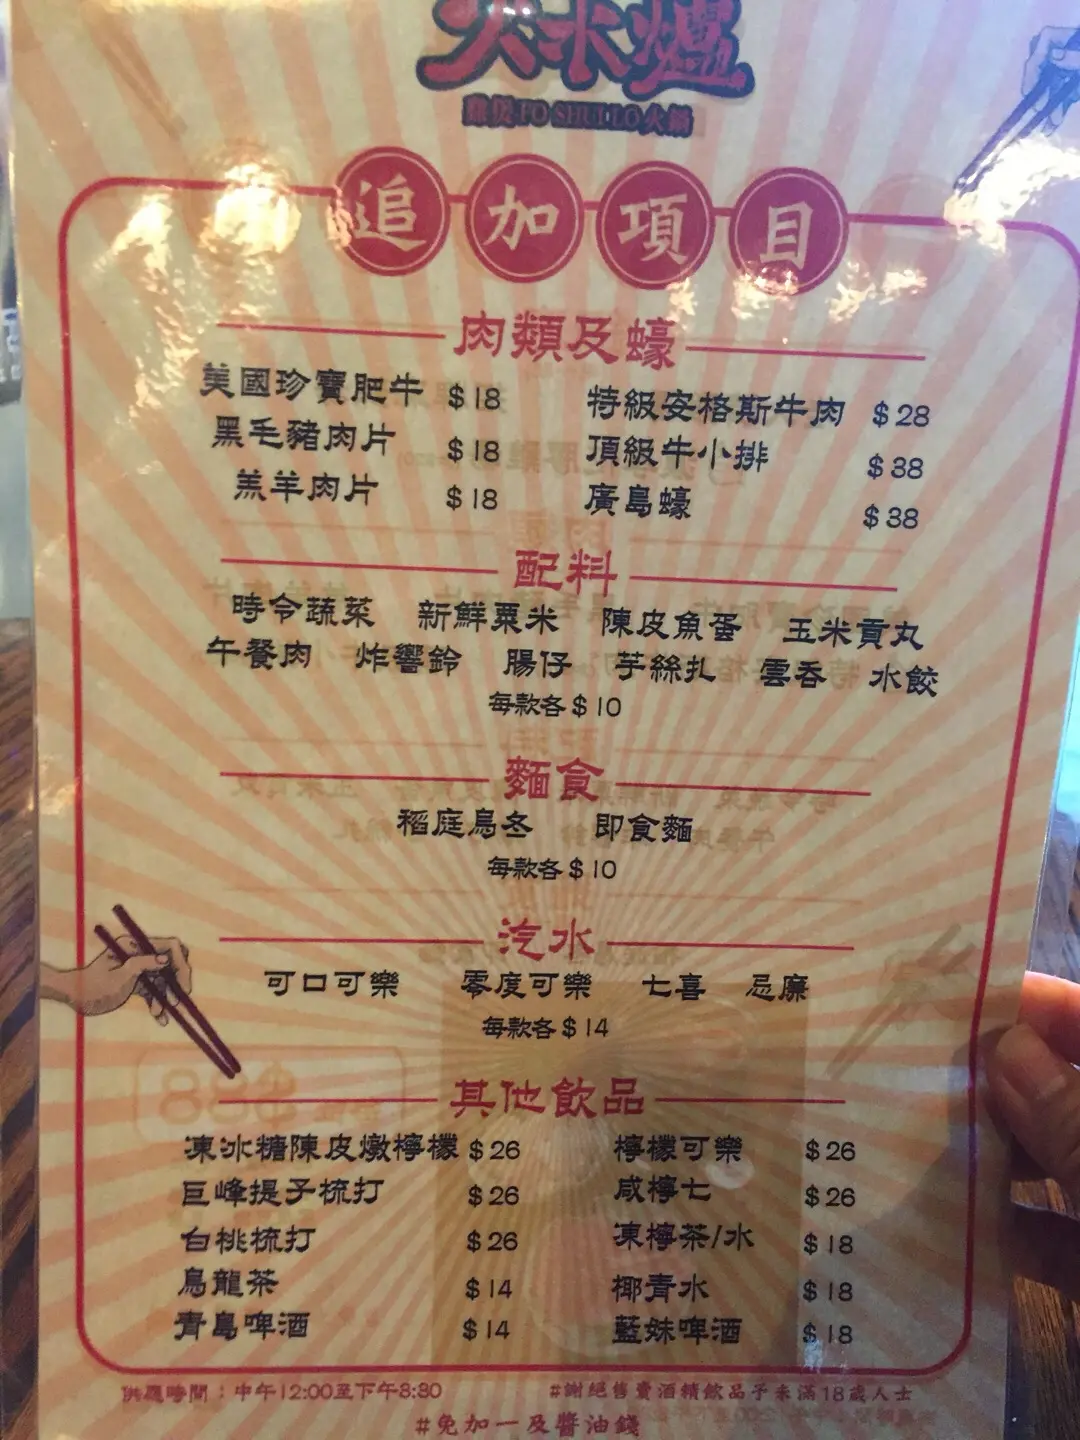 火水爐
雞煲 FO SHUI LO 火鍋
追加項目
肉類及蠔
美國珍寶肥牛 $18 特級安格斯牛肉 $28
黑毛豬肉片 $18 頂級牛小排 $38
羔羊肉片 $18 廣島蠔 $38
配料
時令蔬菜 新鮮粟米 陳皮魚蛋 玉米貢丸
午餐肉 炸響鈴 腸仔 芋絲扎 雲吞 水餃
每款各$10
麵食
稻庭烏冬 即食麵
每款各$10
汽水
可口可樂 零度可樂 七喜 忌廉
每款各$14
其他飲品
凍冰糖陳皮燉檸檬 $26 檸檬可樂 $26
巨峰提子梳打 $26 咸檸七 $26
白桃梳打 $26 凍檸茶/水 $18
烏龍茶 $14 椰青水 $18
青島啤酒 $14 藍妹啤酒 $18
供應時間：中午12:00至下午8:30 #謝絕售賣酒精飲品予未滿18歲人士
#免加一及醬油錢